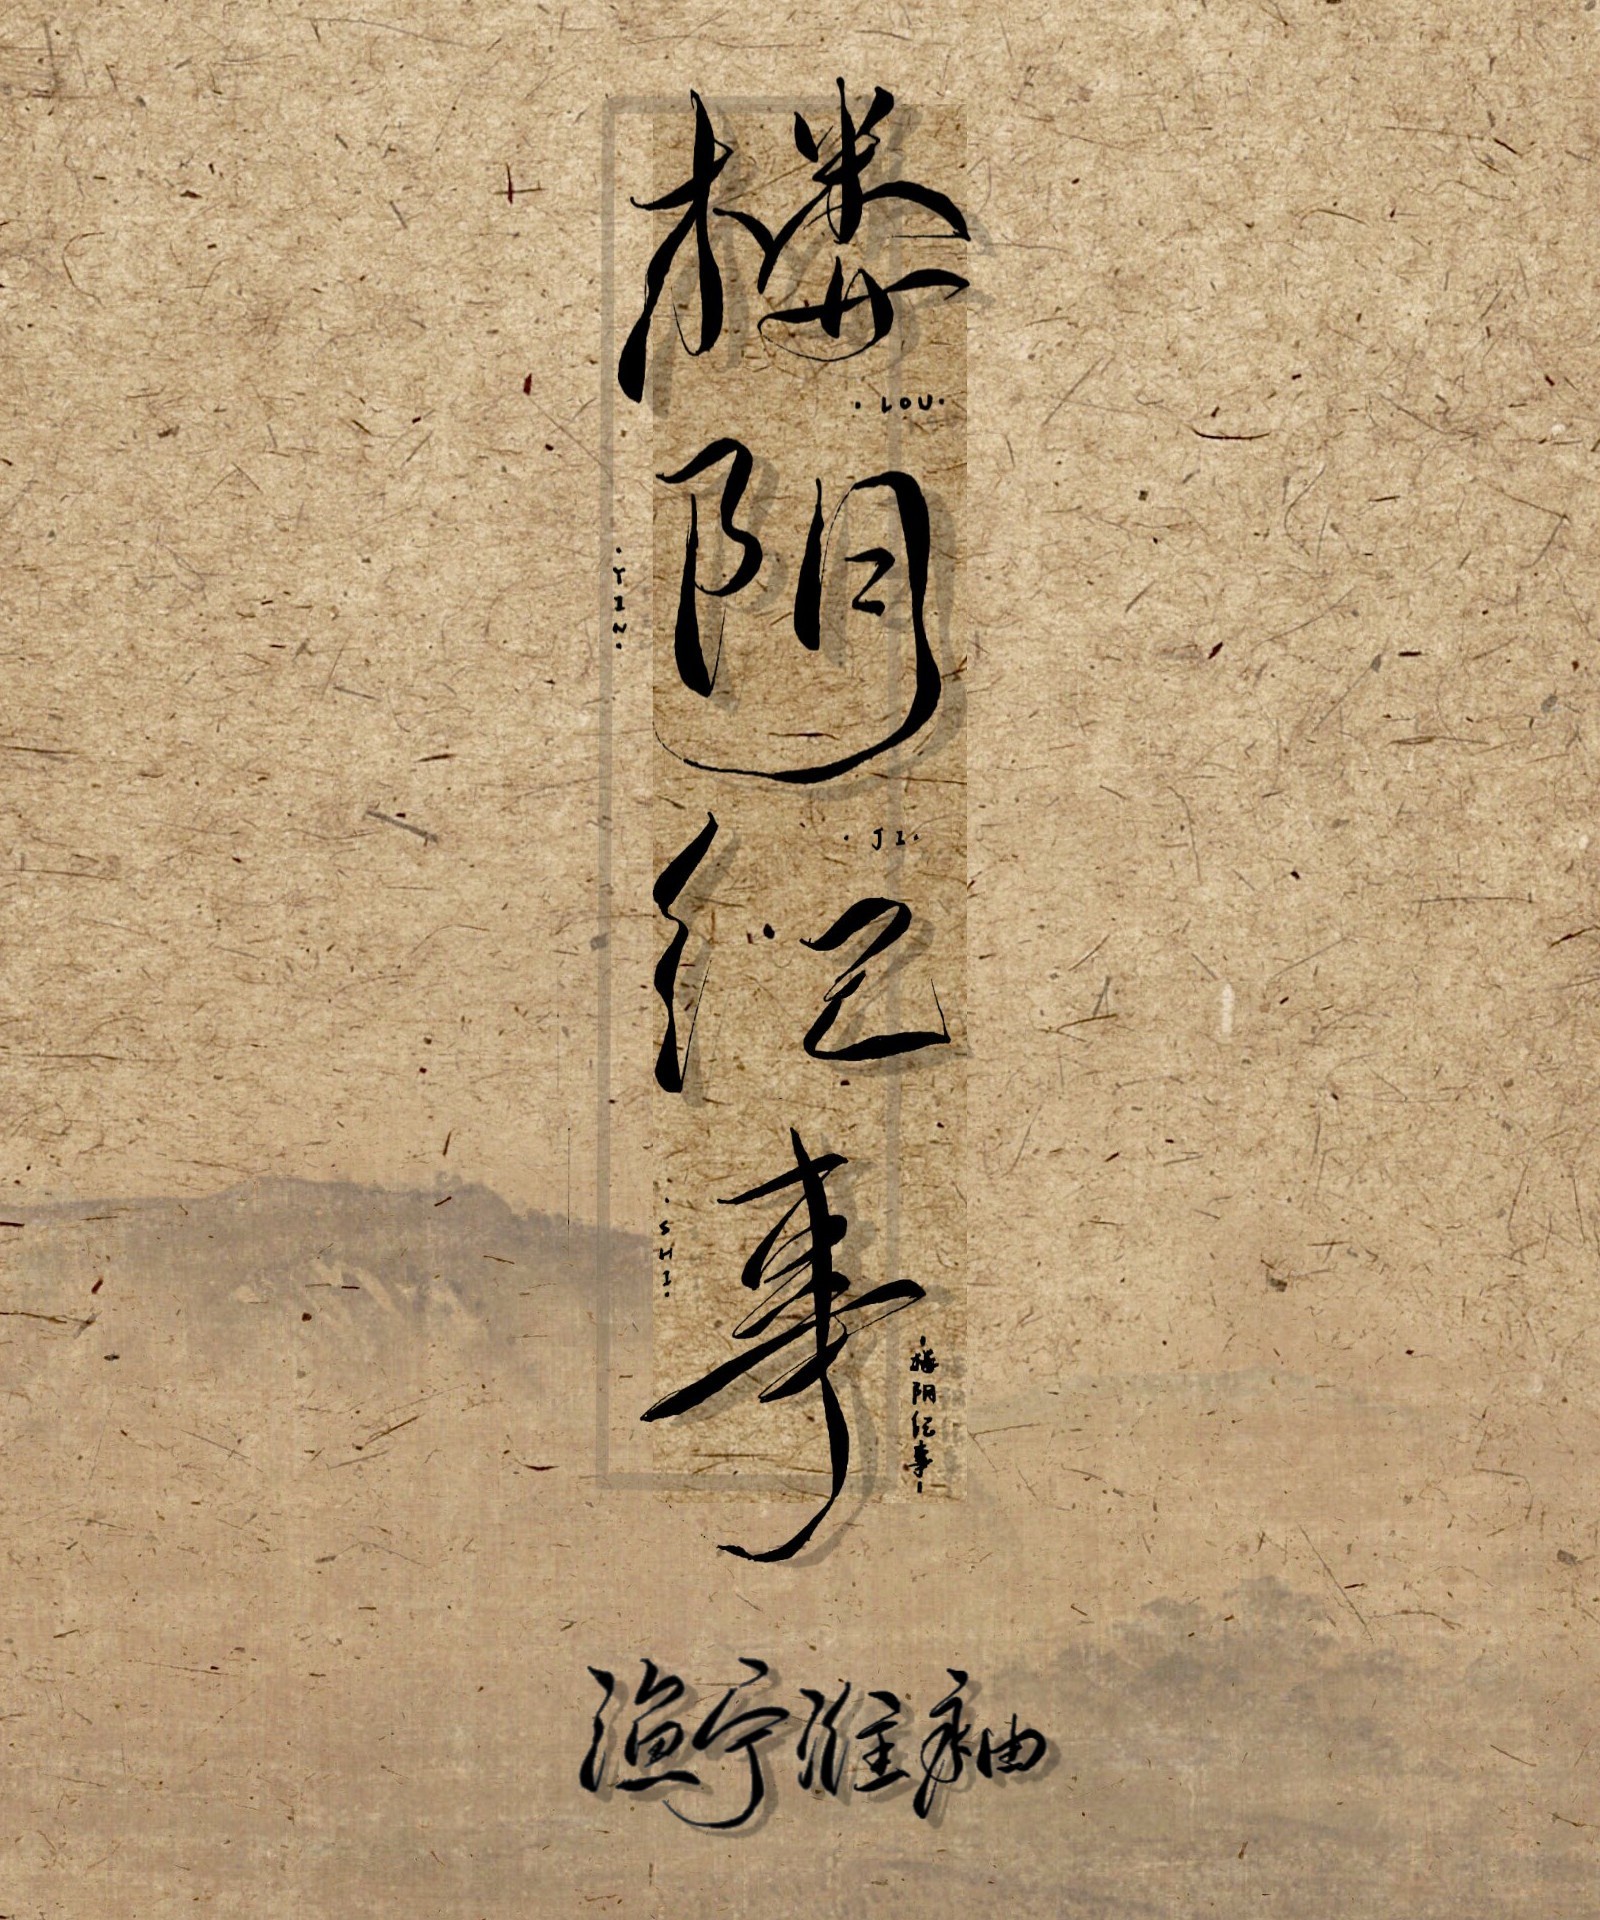 楼阴纪事
·LOU·
·YIN·
·JI·
·SHI·
·楼阴纪事-
渔宁雅袖